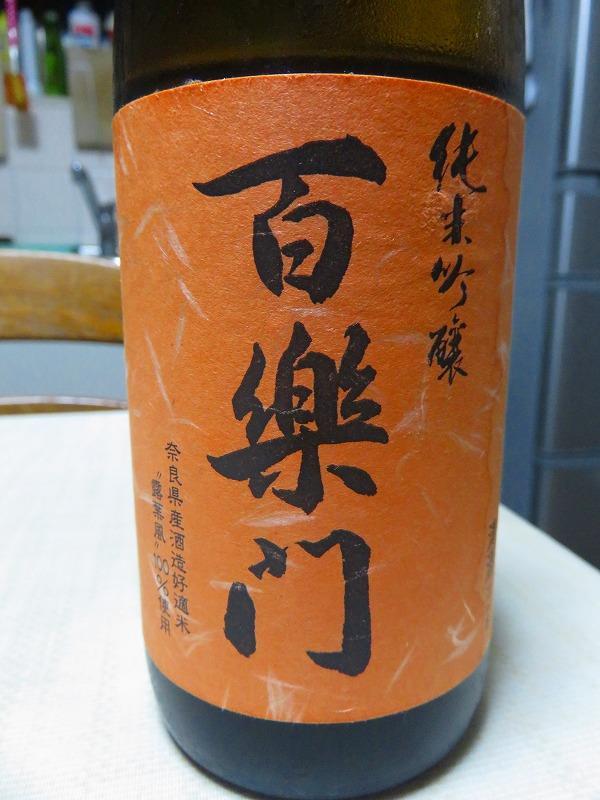 純米吟醸
百楽门
奈良県産酒造好適米
"露葉風"100%使用